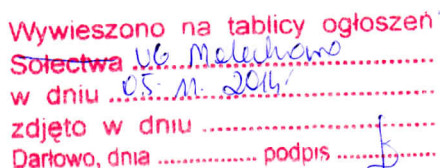 Wywieszono na tablicy ogłoszeń
Sołectwa UG Malechowo
w dniu 05. 11. 2014
zdjęto w dniu ....................
Darłowo, dnia .............. podpis ..............